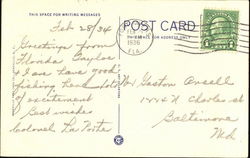 THIS SPACE FOR WRITING MESSAGES
POST CARD
Feb 28/36
Greetings from
Florida
I am have good
fishing here lots
of excitement
Best wishes
Colonel La Motte
FLA.
1936
THIS SPACE FOR ADDRESS ONLY
Mr Gaston
N Charles st
Baltimore
Md